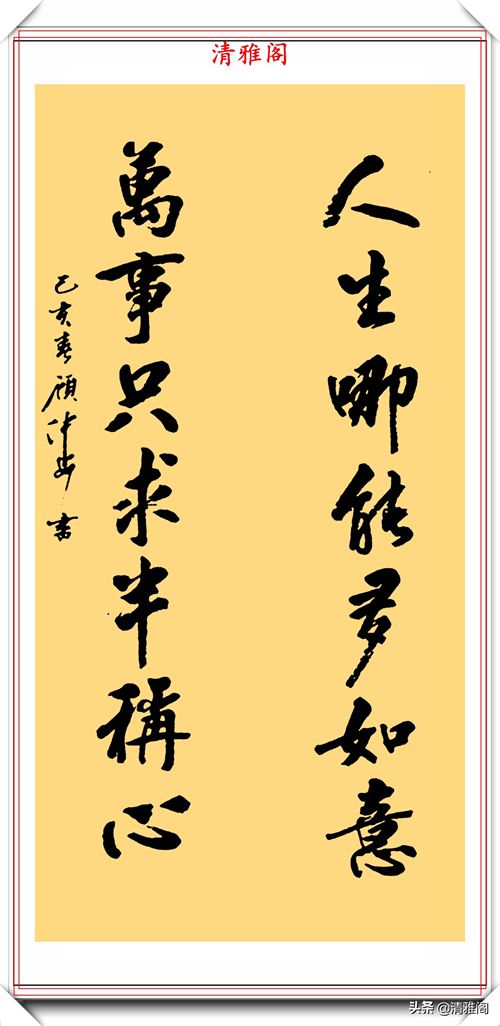 清雅阁
人生哪能多如意
萬事只求半稱心
己亥春顧仲安書
头条 @清雅阁